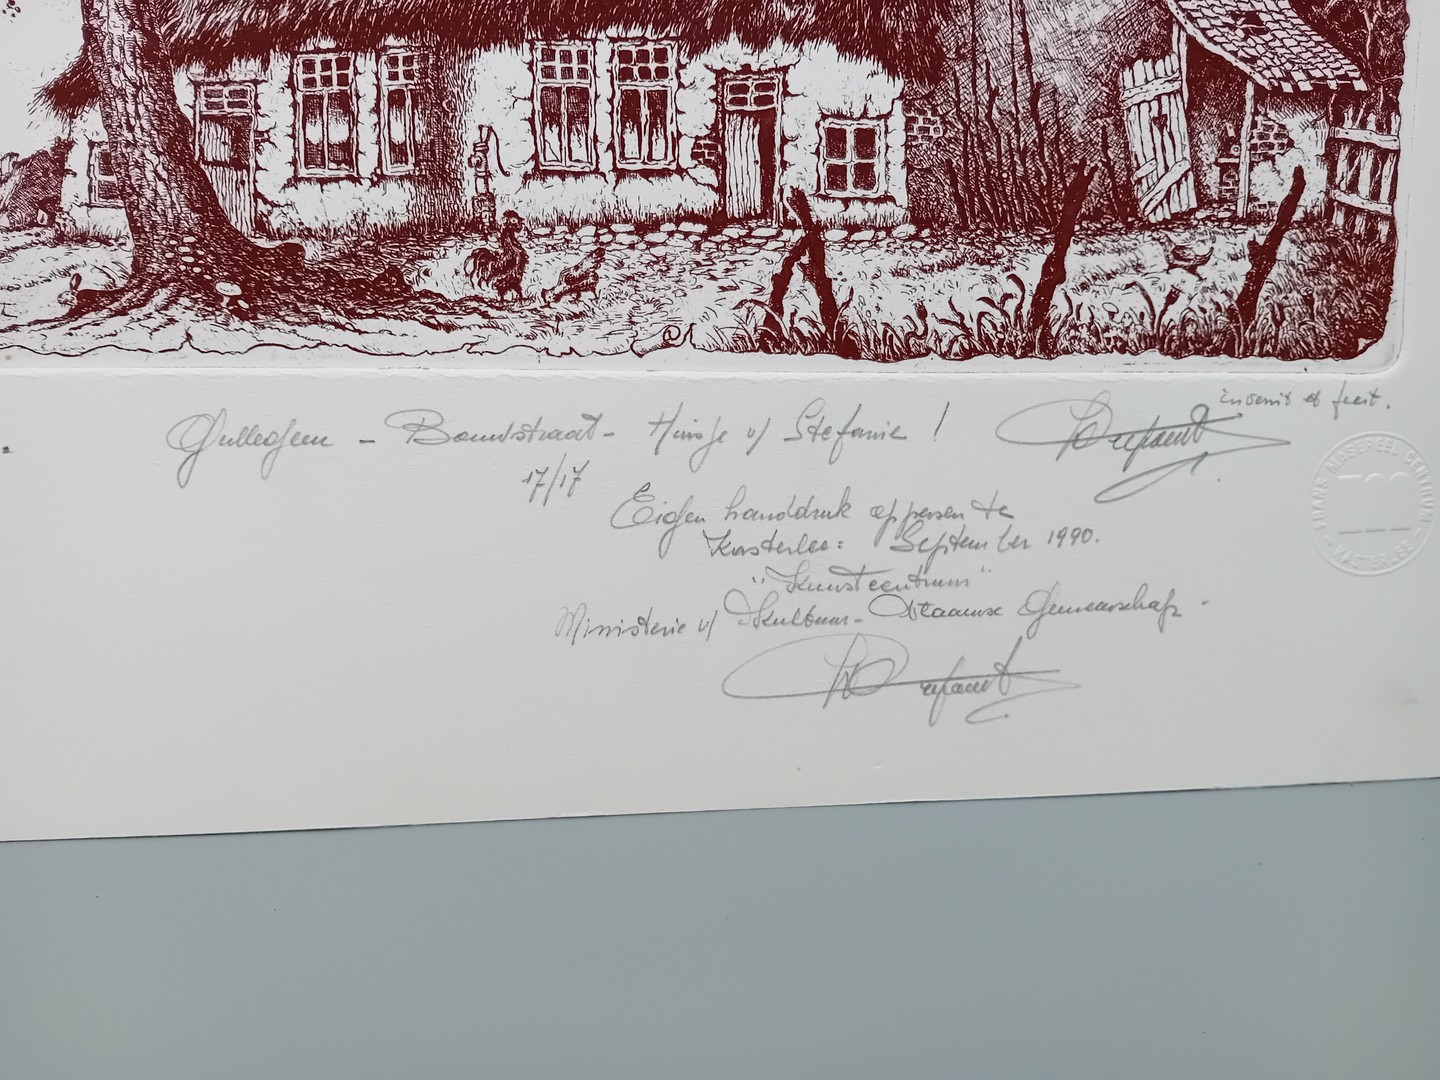 Gullegem - Bomstraat - Huisje v/ Stefanie !
invenit et fecit.
17/17
Eigen handdruk op persen te
Kasterlee: September 1990.
"Kunstcentrum"
Ministerie v/ Kultuur - Vlaamse Gemeenschap -
FRANS MASEREEL CENTRUM
- KASTERLEE -